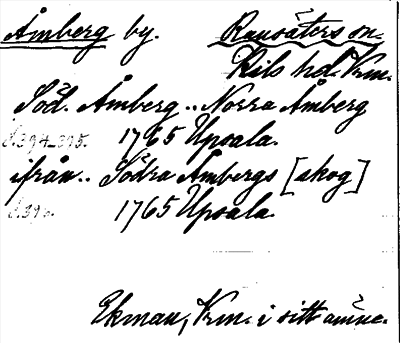 Åmberg by. Ransäters sn.
Kils hd. Vrm.
Söd. Åmberg .. Norra Åmberg
S. 394-395. 1765 Upsala.
ifrån .. Södra Åmbergs [skog]
1765 Upsala.
Ekman, Vrm. i sitt ämne.